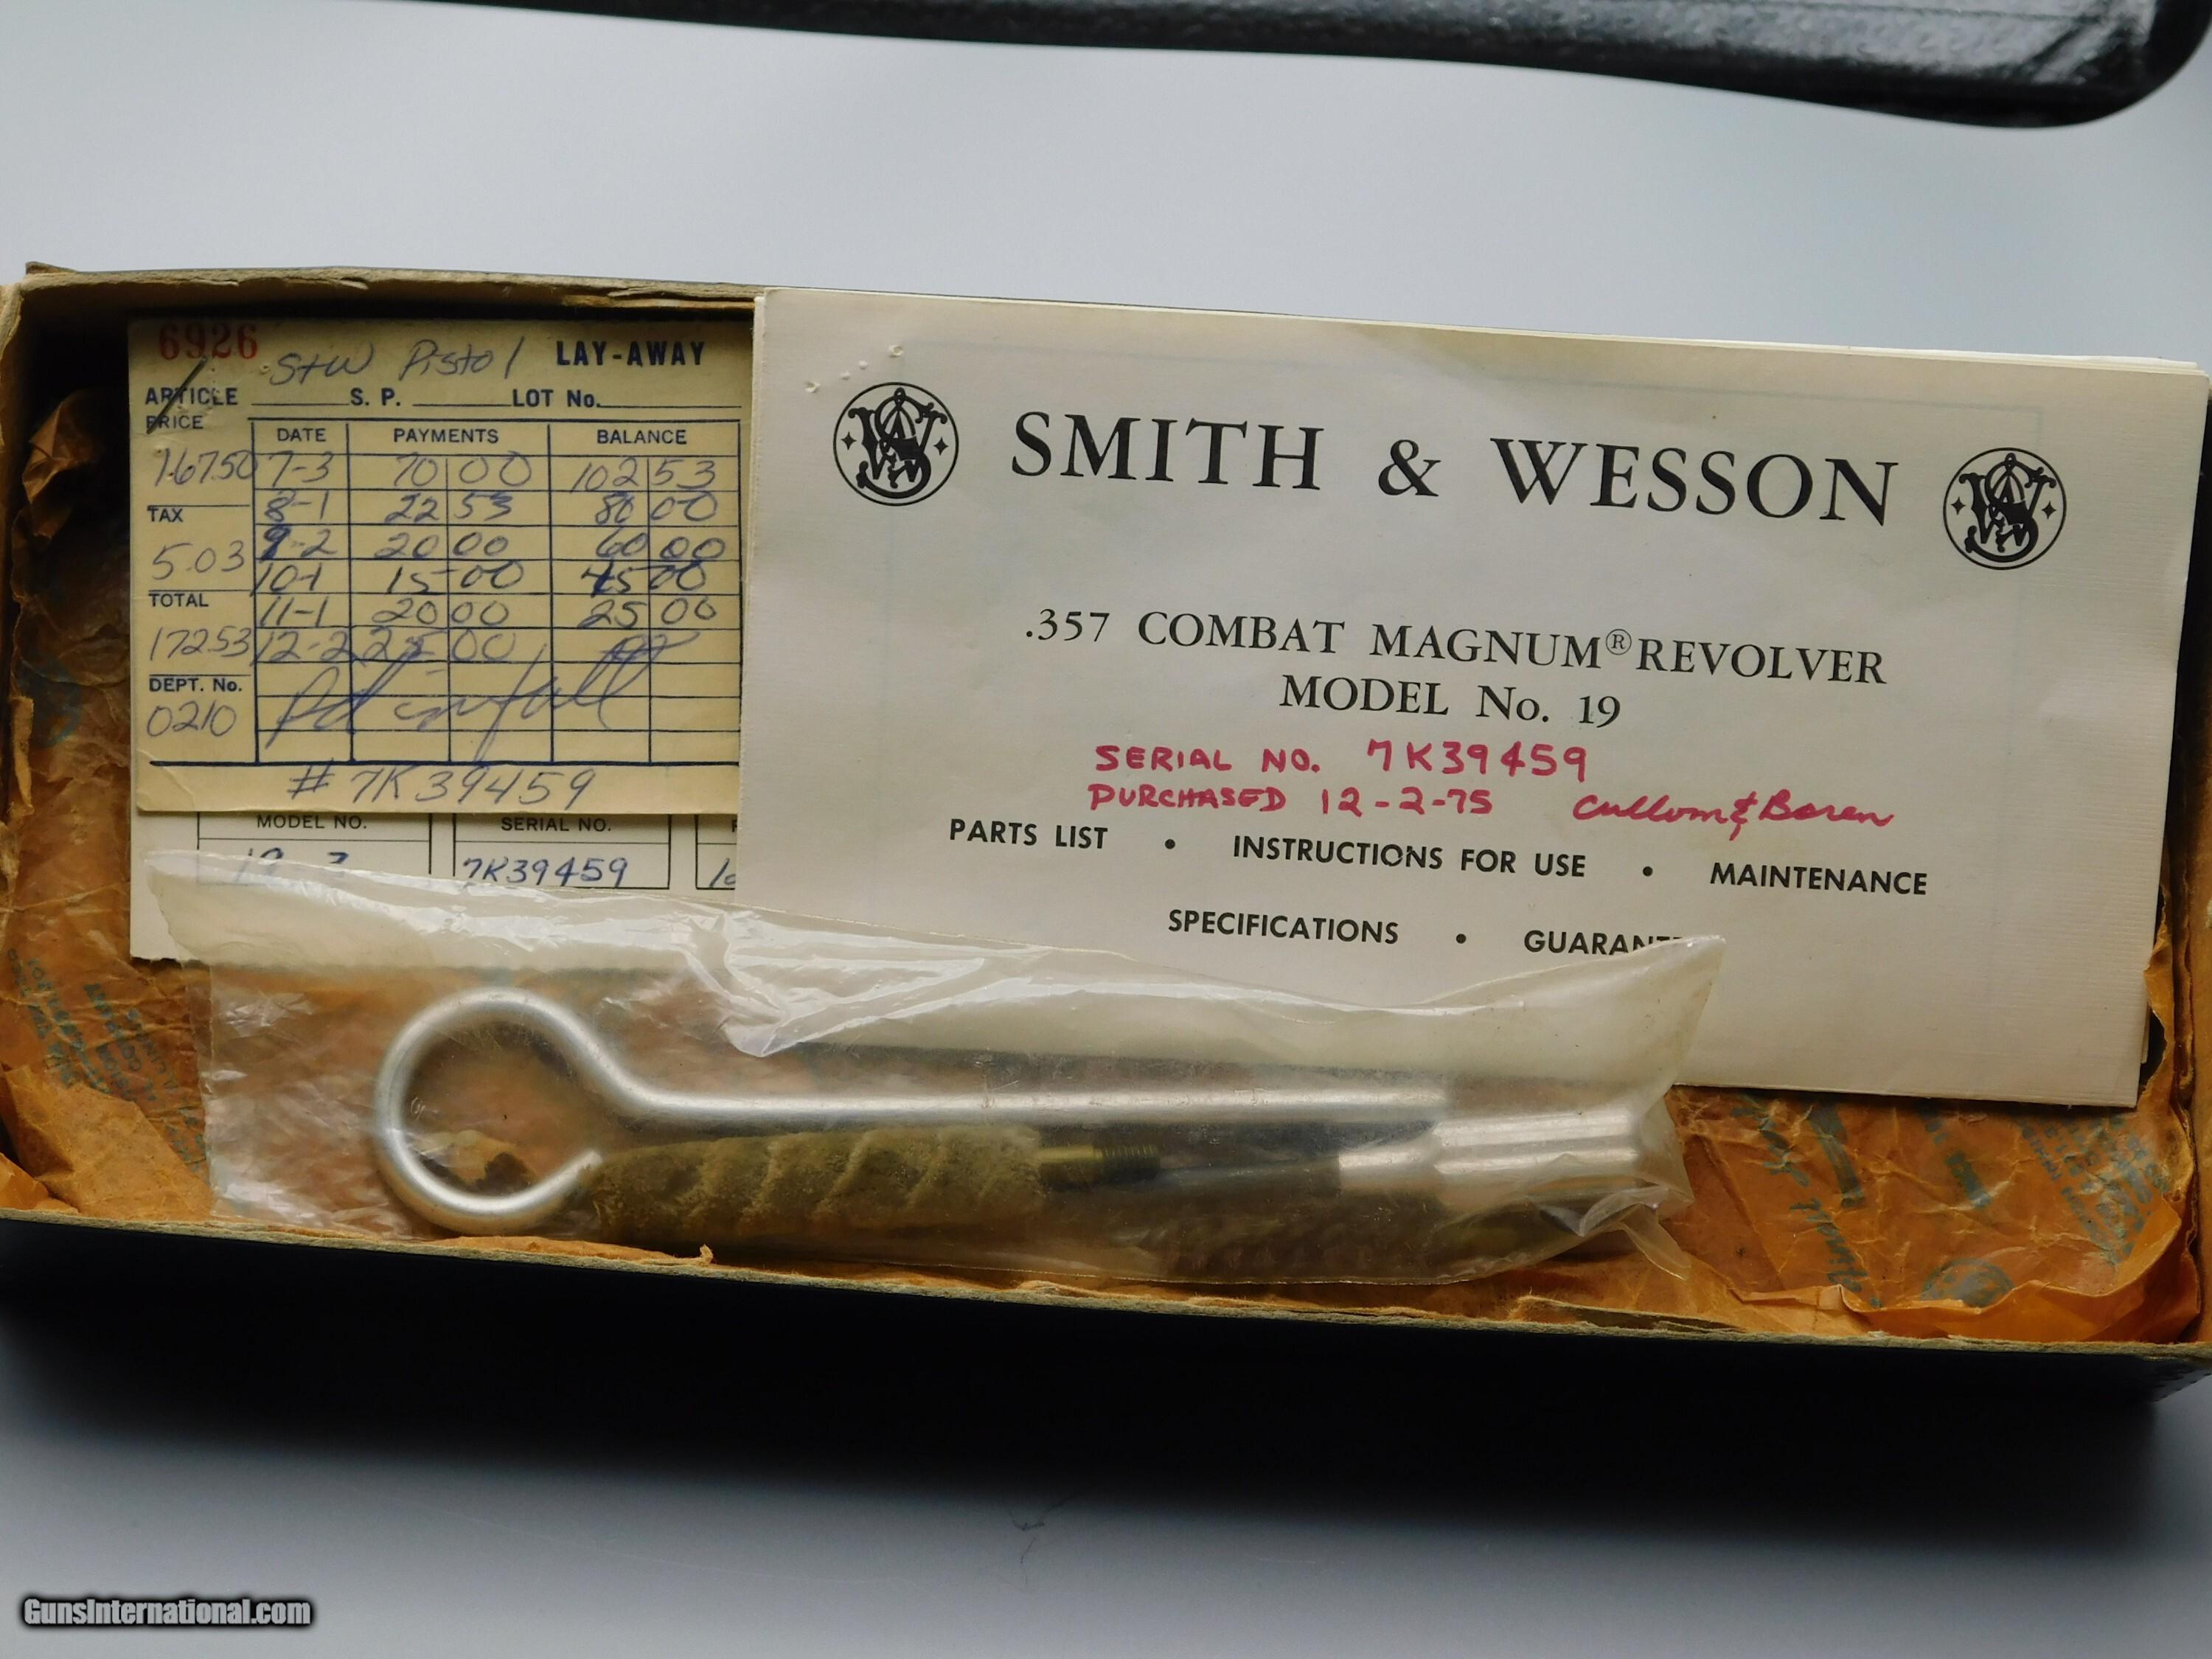 6926
S+W Pistol LAY-AWAY
ARTICLE S. P. LOT No.
PRICE DATE PAYMENTS BALANCE
167.50 7-3 70 00 102 53
TAX 8-1 22 53 80 00
5.03 9-2 20 00 60 00
10-1 15 00 45 00
TOTAL 11-1 20 00 25 00
172.53 12-2 25 00
DEPT. No.
0210 Pd in full
# 7K39459
MODEL NO. SERIAL NO.
19-3 7K39459
SMITH & WESSON
.357 COMBAT MAGNUM® REVOLVER
MODEL No. 19
SERIAL NO. 7K39459
PURCHASED 12-2-75 Cullom & Boren
PARTS LIST • INSTRUCTIONS FOR USE • MAINTENANCE
SPECIFICATIONS •
GunsInternational.com